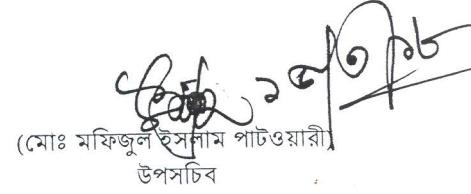 (মোঃ মফিজুল ইসলাম পাটওয়ারী)
উপসচিব